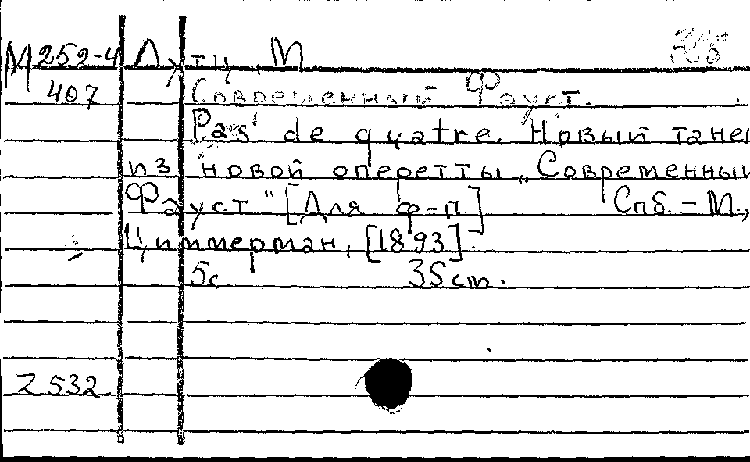 М 252-4 Лутц, М
407 Современный Фауст.
Pas de quatre. Новый танец
из новой оперетты „Современный
Фауст" [Для ф-п] Спб. - М.,
Циммерман, [1893].
5с 35 cm.
Z 532